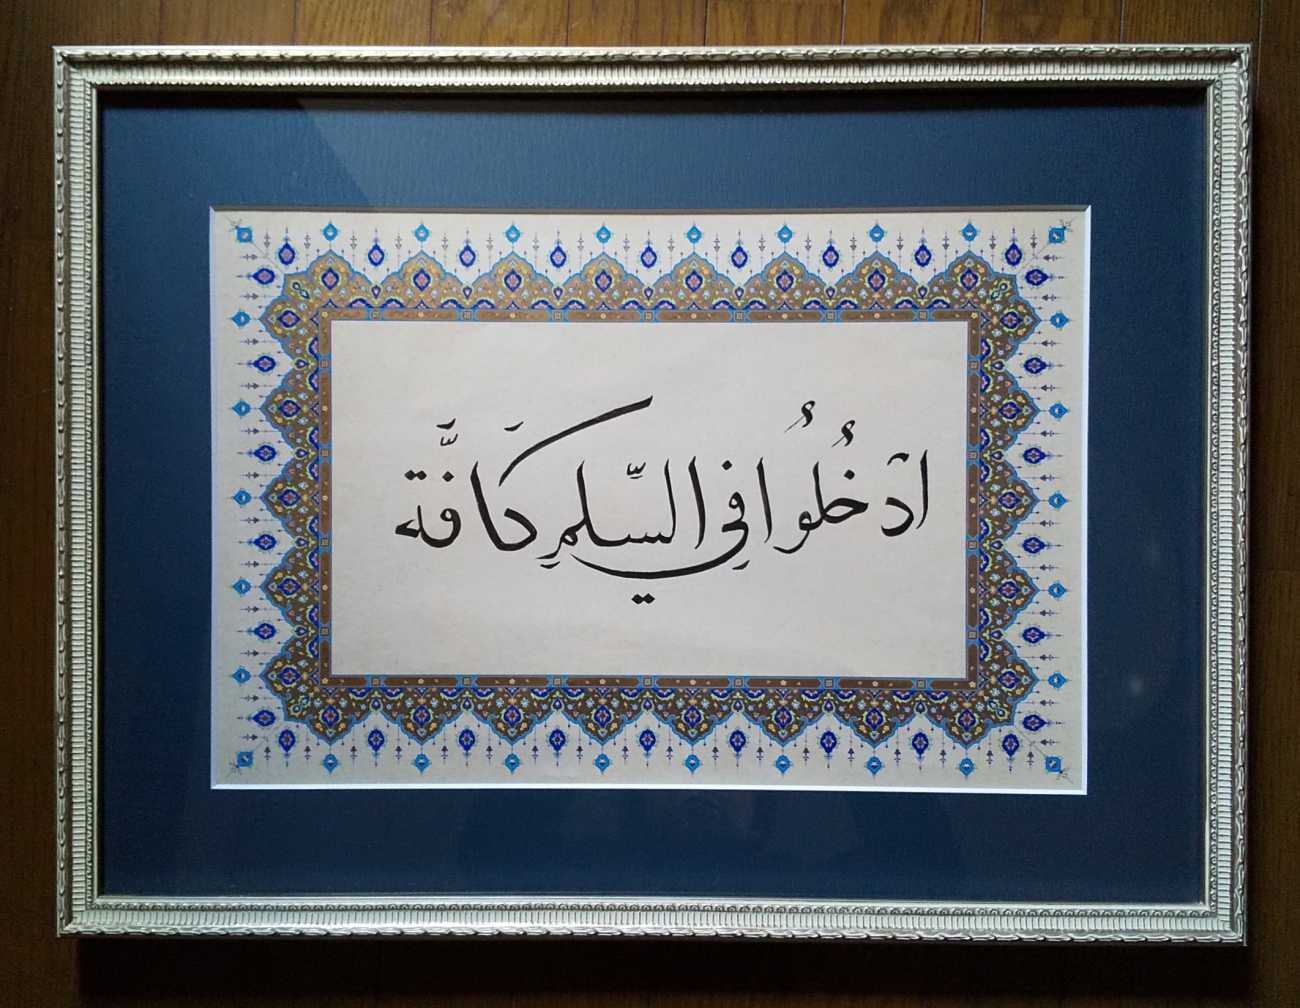 ادْخُلُوا فِي السِّلمِ كَافَّة